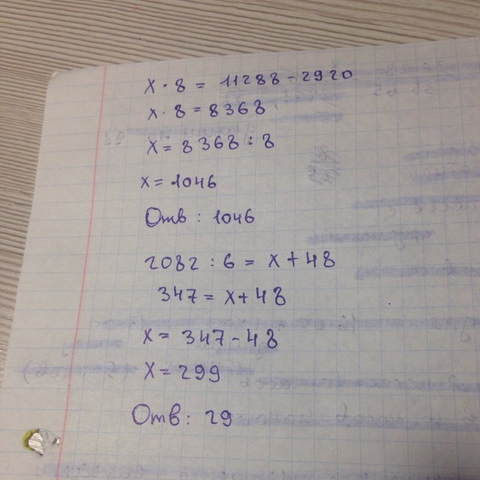 x · 8 = 11288 - 2920
x · 8 = 8368
x = 8368 : 8
x = 1046
Отв : 1046
2082 : 6 = x + 48
347 = x + 48
x = 347 - 48
x = 299
Отв : 29